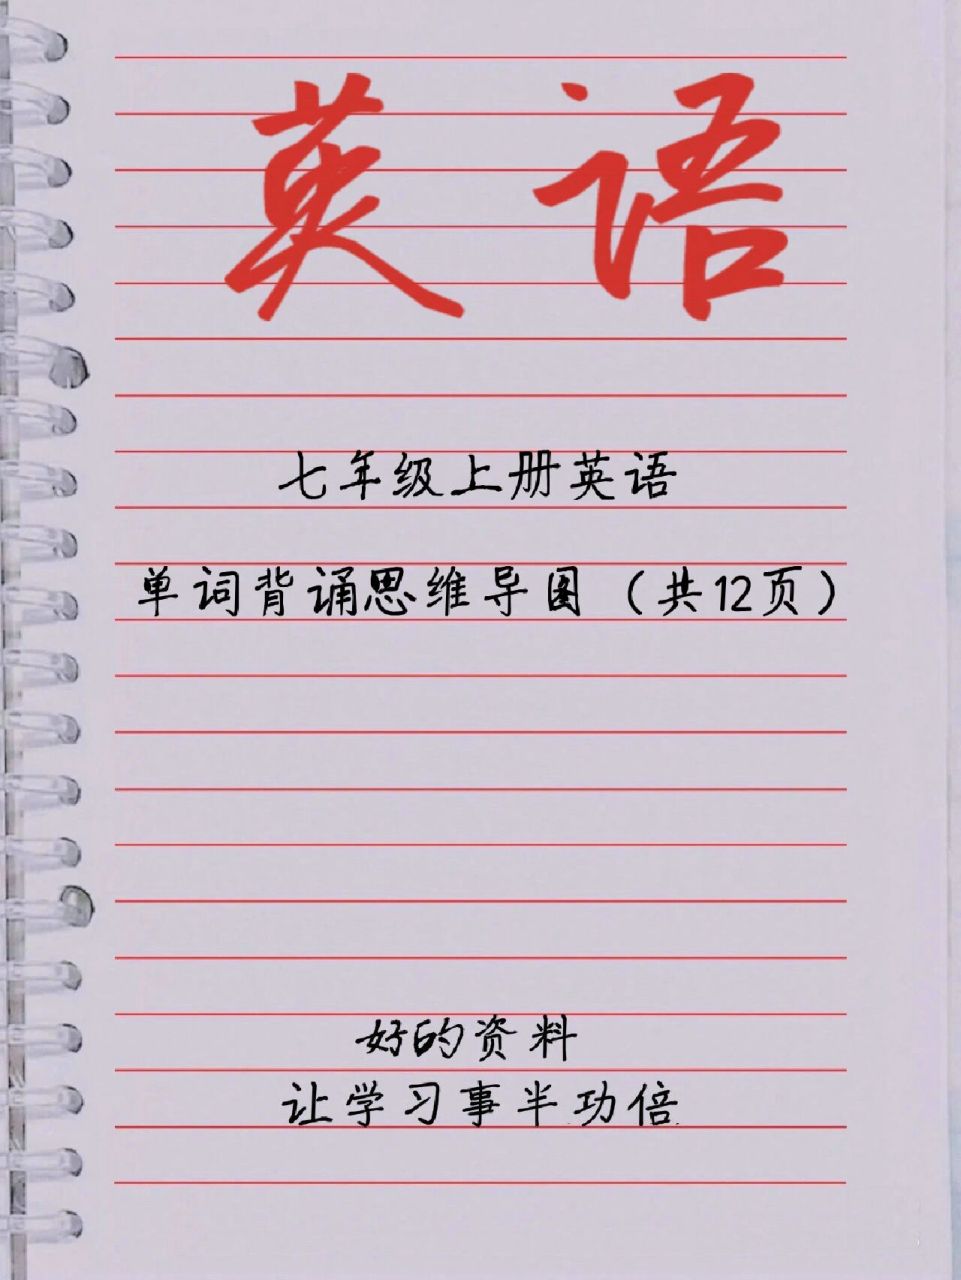 英语
七年级上册英语
单词背诵思维导图（共12页）
好的资料
让学习事半功倍